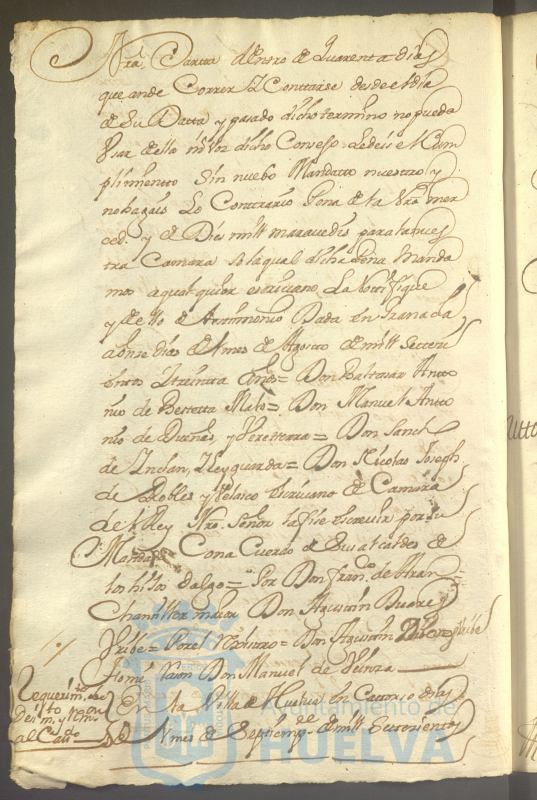 nrã Carta dentro de Quarenta dias
que ande Correr y Contarse desde el dia
de su Datta y pasado dicho termino no pueda
Usar della ni Vos dicho Consejo le deis el Cum
plimiento Sin nuebo Mandatto nuestro y
no hagais lo Contrario Pena de la nrã mer
ced. y de Diez mill maravedis para la nues
tra Camara so la qual dicha Pena manda
mos a qual quier escrivano la Nottifique
y de ello de testimonio Dada en Granada
a onse dias del mes de Agosto de mill Settesi
entos y treinta = Don Baltasar Anto
nio de Mato = Don Manuel Anto
nio de y = Don
de Inclan, y Leyguarda = Don Nicolas Joseph
de Robles y Velasco escrivano de Camara
del Rey Nrõ. Señor la fise escrevir por su
Mandado Con aCuerdo de Sus alcaldes de
los hijos dalgo = Por Don franco. de
Chanziller maior Don Agustin Suares
Uribe = Por el rexistro = Don Agustin Suares Uribe
Don Manuel de
Requerimto.
al Cavdo.
En la Villa de Huelva en Catorse dias
del Mes de Septiemb. de mill Settesientos
Ayuntamiento de
HUELVA